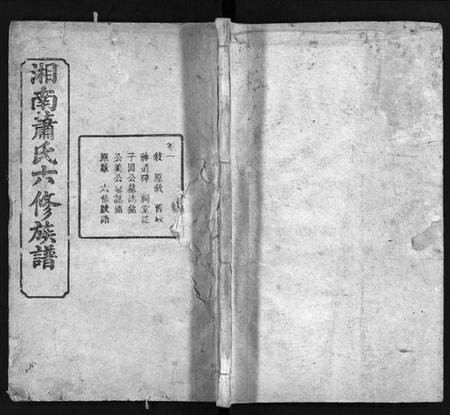 湘南蕭氏六修族譜
卷一
敘 原敘 舊敘
神道碑 祠堂記
子固公墓誌銘
公美公墓誌銘
原跋 六修跋語